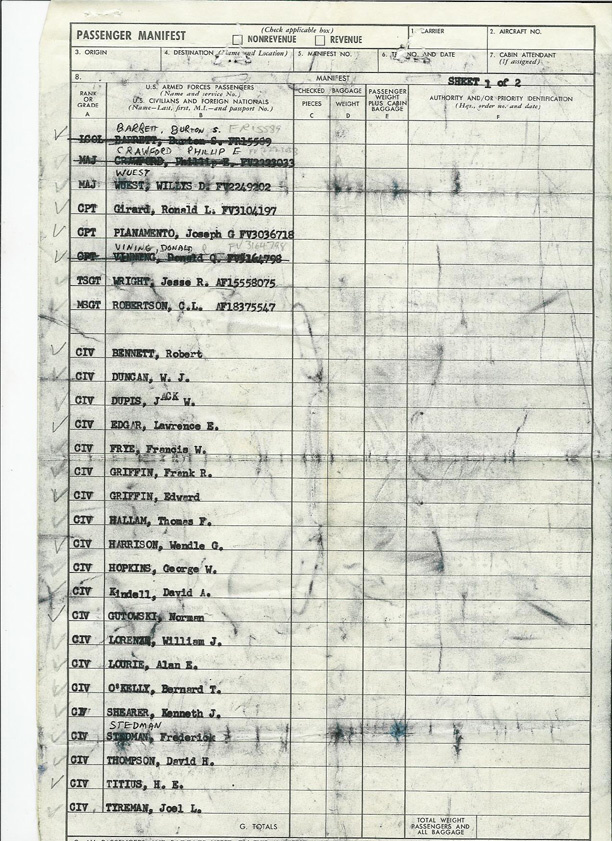 PASSENGER MANIFEST
(Check applicable box)
NONREVENUE REVENUE
1. CARRIER
2. AIRCRAFT NO.
3. ORIGIN
4. DESTINATION (Name and Location)
5. MANIFEST NO.
6. NO. AND DATE
7. CABIN ATTENDANT (If assigned)
8. MANIFEST
SHEET 1 of 2
RANK OR GRADE A
U.S. ARMED FORCES PASSENGERS
(Name and service No.)
U.S. CIVILIANS AND FOREIGN NATIONALS
(Name—Last, first, M.I.—and passport No.)
B
CHECKED BAGGAGE
PIECES C
WEIGHT D
PASSENGER WEIGHT PLUS CABIN BAGGAGE E
AUTHORITY AND/OR PRIORITY IDENTIFICATION
(Hqs., order no. and date)
F
BARRETT, BURTON S. FR15589
LCOL BARRETT, Burton S. FR15589
CRAWFORD PHILLIP E
MAJ CRAWFORD, Phillip E. FV2223033
WUEST
MAJ WUEST, WILLYS D. FV2249202
CPT Girard, Ronald L. FV3104197
CPT PLANAMENTO, Joseph G FV3036718
VINING, DONALD Q FV3164798
CPT VINNING, Donald Q. FV3164798
TSGT WRIGHT, Jesse R. AF15558075
MSGT ROBERTSON, C.L. AF18375547
CIV BENNETT, Robert
CIV DUNCAN, W. J.
CIV DUPIS, JACK W.
CIV EDGAR, Lawrence E.
CIV FRYE, Francis W.
CIV GRIFFIN, Frank R.
CIV GRIFFIN, Edward
CIV HALLAM, Thomas F.
CIV HARRISON, Wendle G.
CIV HOPKINS, George W.
CIV Kindell, David A.
CIV GUTOWSKI, Norman
CIV LORENZN, William J.
CIV LOURIE, Alan E.
CIV O'KELLY, Bernard T.
CIV SHEARER, Kenneth J.
STEDMAN
CIV STEDMAN, Frederick
CIV THOMPSON, David H.
CIV TITIUS, H. E.
CIV TYREMAN, Joel L.
G. TOTALS
TOTAL WEIGHT PASSENGERS AND ALL BAGGAGE